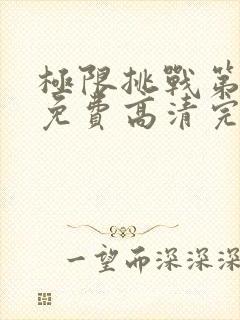 極限挑戰第
免費高清完
一望而深深深